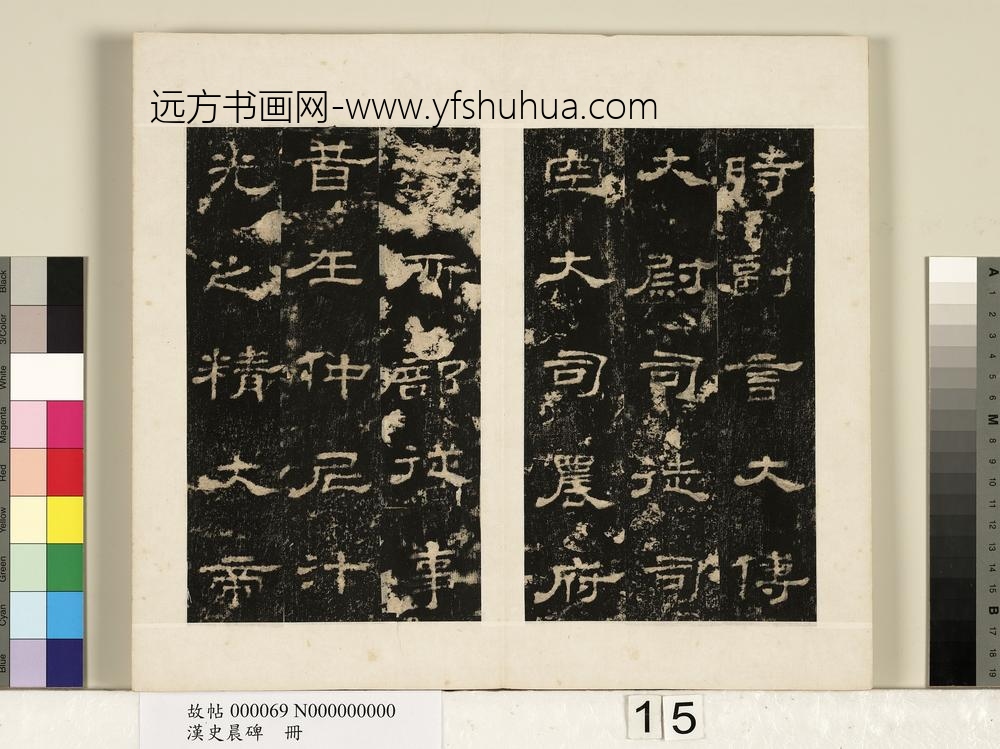 远方书画网-www.yfshuhua.com
時副言大傅
大尉司徒司
空大司農府
所部從事
昔在仲尼汁
光之精大帝
Black
3/Color
White
Magenta
Red
Yellow
Green
Cyan
Blue
A
1
2
3
4
5
6
M
8
9
10
11
12
13
14
15
B
17
18
19
故帖 000069 N000000000
漢史晨碑 冊
15